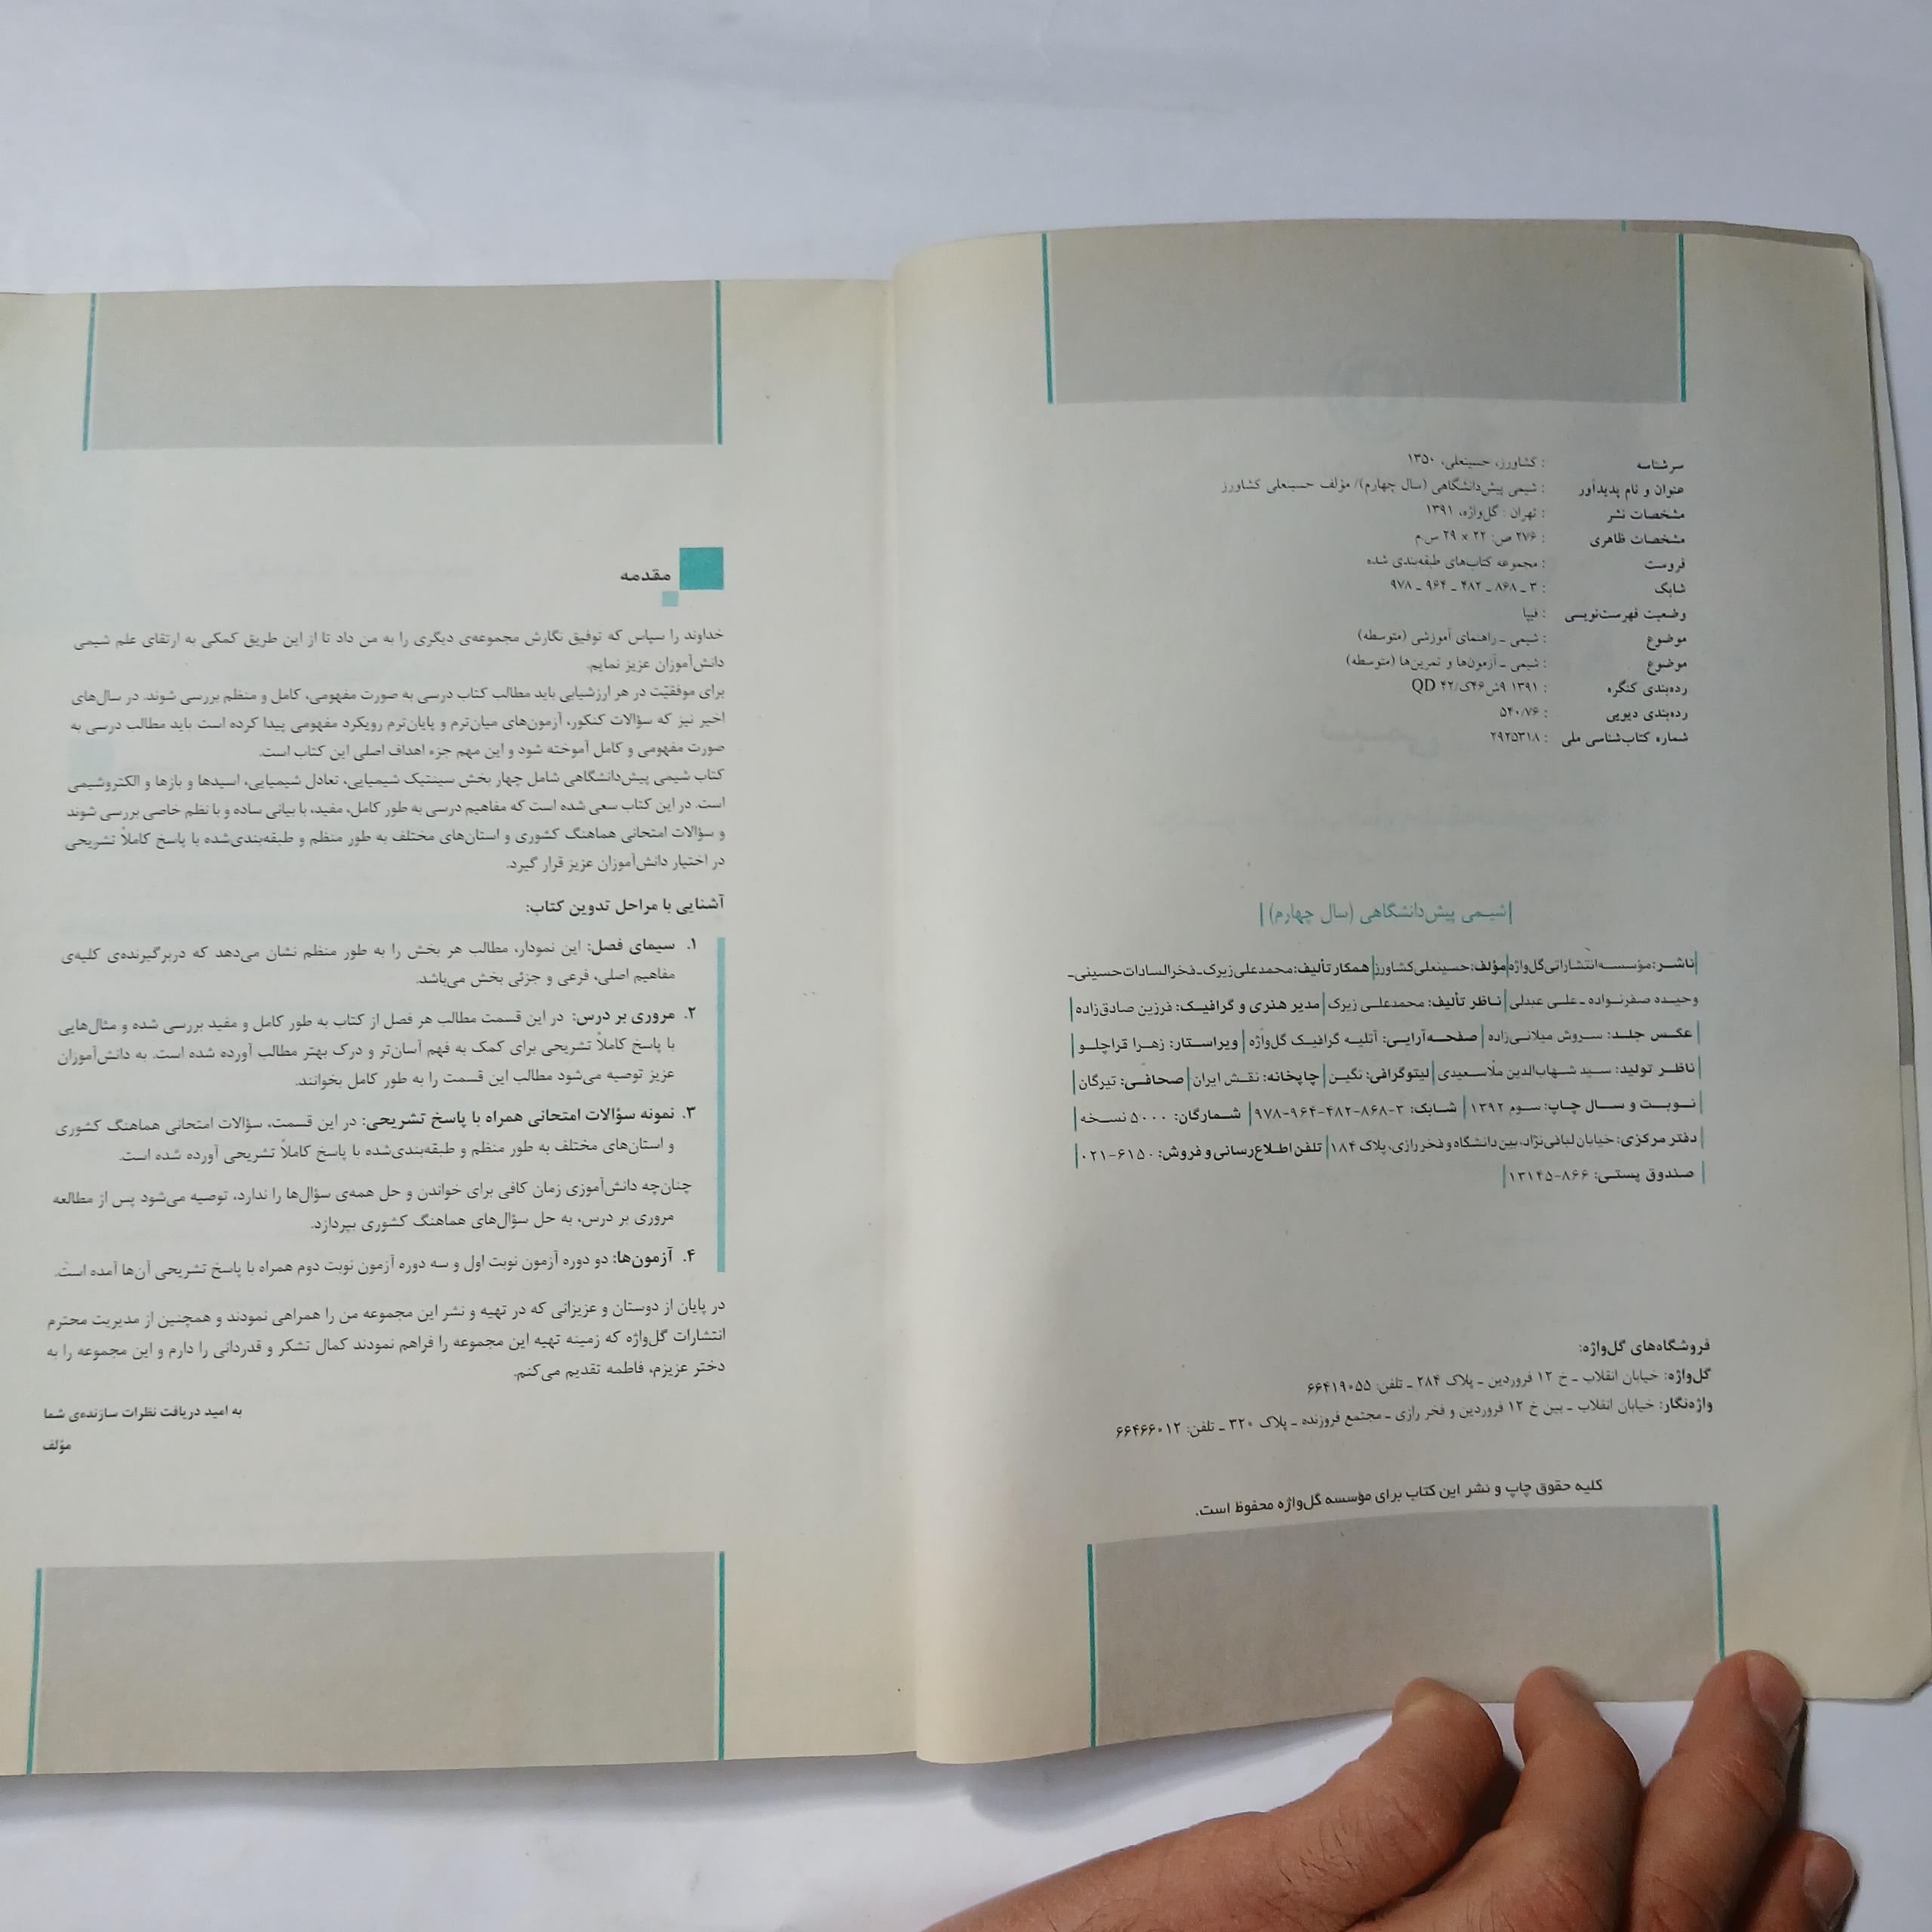 سرشناسه : کشاورز، حسینعلی، ۱۳۵۰
عنوان و نام پدیدآور : شیمی پیش‌دانشگاهی (سال چهارم)/ مؤلف حسینعلی کشاورز
مشخصات نشر : تهران : گل‌واژه، ۱۳۹۱
مشخصات ظاهری : ۲۷۶ ص: ۲۲ × ۲۹ س‌م
فروست : مجموعه کتاب‌های طبقه‌بندی شده
شابک : ۳ ـ ۸۶۸ ـ ۴۸۲ ـ ۹۶۴ ـ ۹۷۸
وضعیت فهرست‌نویسی : فیپا
موضوع : شیمی ـ راهنمای آموزشی (متوسطه)
موضوع : شیمی ـ آزمون‌ها و تمرین‌ها (متوسطه)
رده‌بندی کنگره : ۱۳۹۱ ۹ش۴۶ک/۴۲ QD
رده‌بندی دیویی : ۵۴۰/۷۶
شماره کتاب‌شناسی ملی : ۲۹۲۵۳۱۸
|شیـمی پیش‌دانشگاهی (سال چهارم)|
|ناشـر: مؤسسـه انتشاراتی گل‌واژه|مؤلف: حسینعلی کشاورز|همکار تألیف: محمدعلی زیرک ـ فخرالسادات حسینی ـ
وحیـده صفرنـواده ـ علـی عبدلی|نـاظر تألیف: محمدعلـی زیرک|مدیر هنری و گرافیـک: فرزین صادق‌زاده|
|عکـس جلـد: سـروش میلانـی‌زاده|صفحـه‌آرایـی: آتلیـه گرافیـک گل‌واژه|ویراسـتار: زهـرا قراچلـو|
|ناظـر تولید: سـید شـهاب‌الدین ملاسـعیدی|لیتوگرافی: نگیـن|چاپخانه: نقـش ایران|صحافـی: تیرگان|
|نـوبـت و سـال چـاپ: سـوم ۱۳۹۲| شـابک: ۳-۸۶۸-۴۸۲-۹۶۴-۹۷۸| شـمارگان: ۵۰۰۰ نسـخه|
|دفتر مرکزی: خیابان لبافی‌نژاد، بین دانشگاه و فخر رازی، پلاک ۱۸۴|تلفن اطلاع‌رسانی و فروش: ۶۱۵۰-۰۲۱|
|صندوق پستـی: ۸۶۶-۱۳۱۴۵|
فروشگاه‌های گل‌واژه:
گل‌واژه: خیابان انقلاب ـ خ ۱۲ فروردین ـ پلاک ۲۸۴ ـ تلفن: ۶۶۴۱۹۰۵۵
واژه‌نگار: خیابان انقلاب ـ بین خ ۱۲ فروردین و فخر رازی ـ مجتمع فروزنده ـ پلاک ۳۲۰ ـ تلفن: ۶۶۴۶۶۰۱۲
کلیه حقوق چاپ و نشر این کتاب برای مؤسسه گل‌واژه محفوظ است.
مقدمه
خداوند را سپاس که توفیق نگارش مجموعه‌ی دیگری را به من داد تا از این طریق کمکی به ارتقای علم شیمی
دانش‌آموزان عزیز نمایم.
برای موفقیّت در هر ارزشیابی باید مطالب کتاب درسی به صورت مفهومی، کامل و منظم بررسی شوند. در سال‌های
اخیر نیز که سؤالات کنکور، آزمون‌های میان‌ترم و پایان‌ترم رویکرد مفهومی پیدا کرده است باید مطالب درسی به
صورت مفهومی و کامل آموخته شود و این مهم جزء اهداف اصلی این کتاب است.
کتاب شیمی پیش‌دانشگاهی شامل چهار بخش سینتیک شیمیایی، تعادل شیمیایی، اسیدها و بازها و الکتروشیمی
است. در این کتاب سعی شده است که مفاهیم درسی به طور کامل، مفید، با بیانی ساده و با نظم خاصی بررسی شوند
و سؤالات امتحانی هماهنگ کشوری و استان‌های مختلف به طور منظم و طبقه‌بندی‌شده با پاسخ کاملاً تشریحی
در اختیار دانش‌آموزان عزیز قرار گیرد.
آشنایی با مراحل تدوین کتاب:
۱. سیمای فصل: این نمودار، مطالب هر بخش را به طور منظم نشان می‌دهد که دربرگیرنده‌ی کلیه‌ی
مفاهیم اصلی، فرعی و جزئی بخش می‌باشد.
۲. مروری بر درس: در این قسمت مطالب هر فصل از کتاب به طور کامل و مفید بررسی شده و مثال‌هایی
با پاسخ کاملاً تشریحی برای کمک به فهم آسان‌تر و درک بهتر مطالب آورده شده است. به دانش‌آموزان
عزیز توصیه می‌شود مطالب این قسمت را به طور کامل بخوانند.
۳. نمونه سؤالات امتحانی همراه با پاسخ تشریحی: در این قسمت، سؤالات امتحانی هماهنگ کشوری
و استان‌های مختلف به طور منظم و طبقه‌بندی‌شده با پاسخ کاملاً تشریحی آورده شده است.
چنان‌چه دانش‌آموزی زمان کافی برای خواندن و حل همه‌ی سؤال‌ها را ندارد، توصیه می‌شود پس از مطالعه
مروری بر درس، به حل سؤال‌های هماهنگ کشوری بپردازد.
۴. آزمون‌ها: دو دوره آزمون نوبت اول و سه دوره آزمون نوبت دوم همراه با پاسخ تشریحی آن‌ها آمده است.
در پایان از دوستان و عزیزانی که در تهیه و نشر این مجموعه من را همراهی نمودند و همچنین از مدیریت محترم
انتشارات گل‌واژه که زمینه تهیه این مجموعه را فراهم نمودند کمال تشکر و قدردانی را دارم و این مجموعه را به
دختر عزیزم، فاطمه تقدیم می‌کنم.
به امید دریافت نظرات سازنده‌ی شما
مؤلف